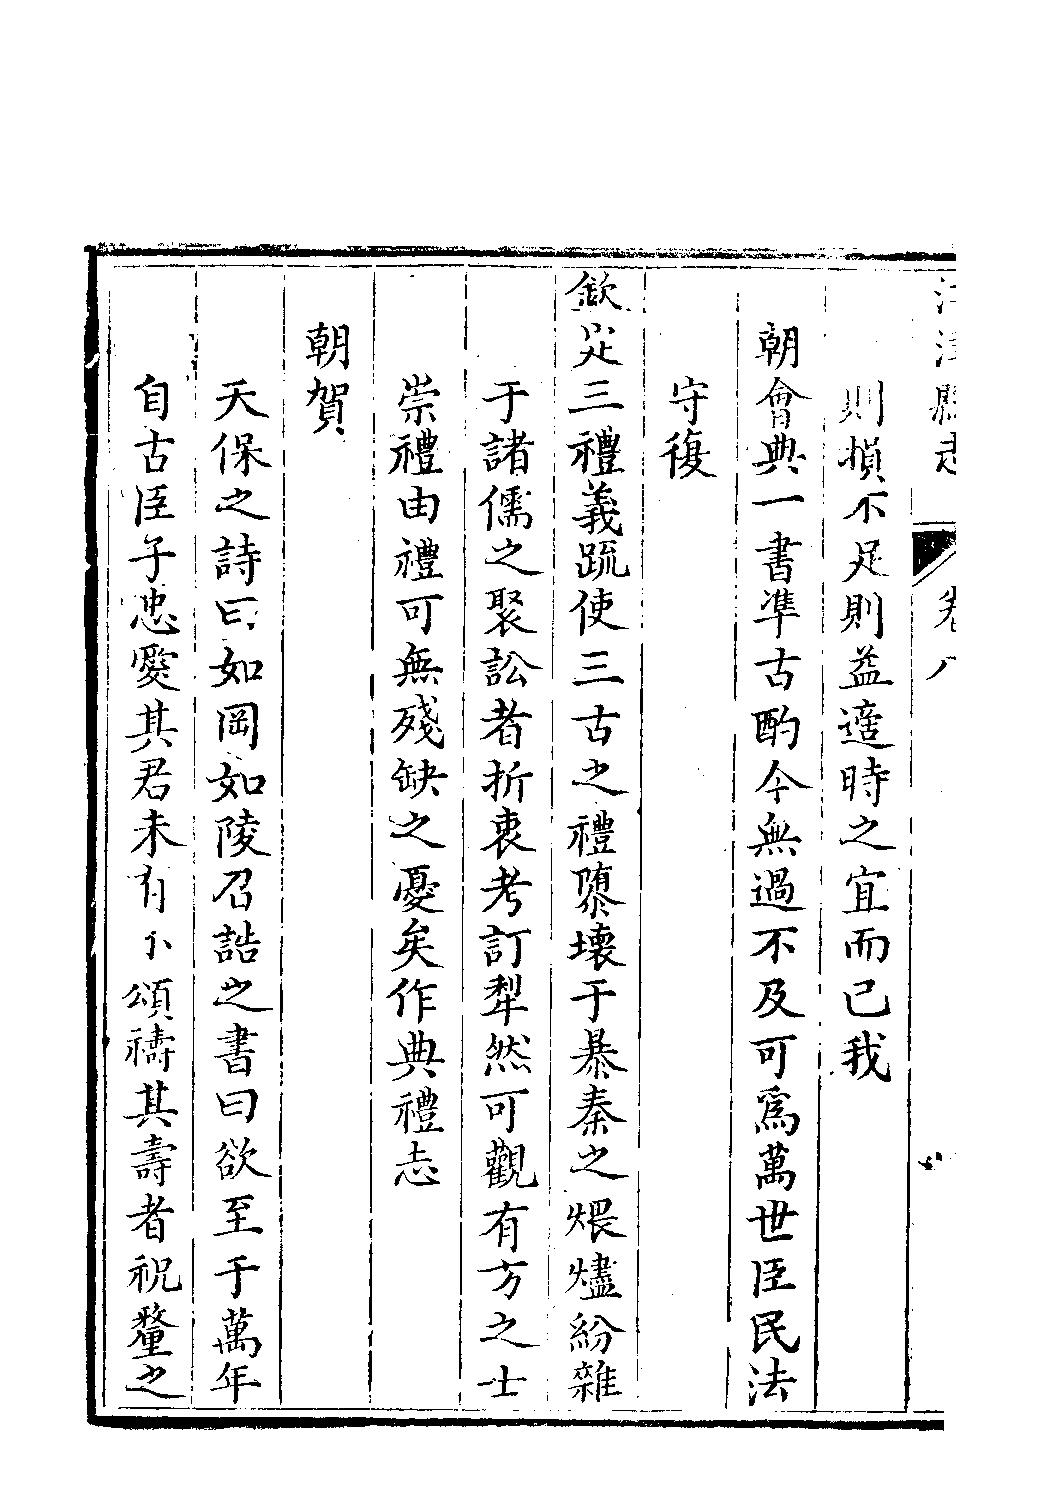 津縣志 卷八
則損不足則益適時之宜而已我
朝會典一書凖古酌今無過不及可爲萬世臣民法
守復
欽定三禮義疏使三古之禮隳壞于暴秦之煨燼紛雜
于諸儒之聚訟者折衷考訂犁然可觀有方之士
崇禮由禮可無殘缺之憂矣作典禮志
朝賀
天保之詩曰如岡如陵召誥之書曰欲至于萬年
自古臣子忠愛其君未有不頌禱其壽者祝釐之